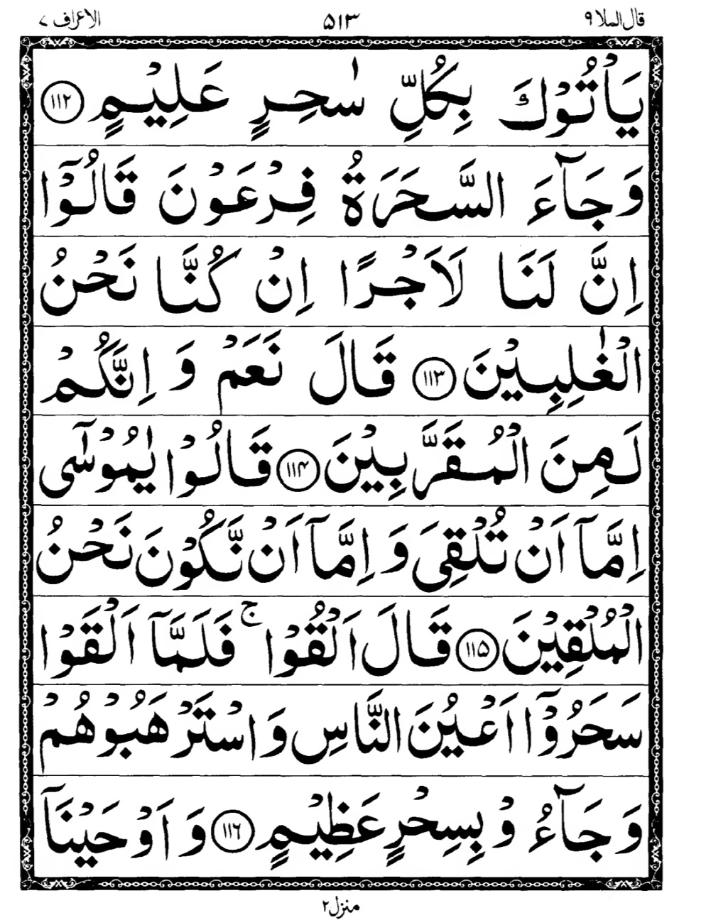 قال الملا ٩ ٥١٣ الاعراف ٧
يَاْتُوْكَ بِكُلِّ سٰحِرٍ عَلِيْمٍ ﴿۱۱۲﴾
وَجَآءَ السَّحَرَةُ فِرْعَوْنَ قَالُوْۤا
اِنَّ لَنَا لَاَجْرًا اِنْ كُنَّا نَحْنُ
الْغٰلِبِيْنَ ﴿۱۱۳﴾ قَالَ نَعَمْ وَ اِنَّكُمْ
لَمِنَ الْمُقَرَّبِيْنَ ﴿۱۱۴﴾ قَالُوْا يٰمُوْسٰۤى
اِمَّاۤ اَنْ تُلْقِيَ وَ اِمَّاۤ اَنْ نَّكُوْنَ نَحْنُ
الْمُلْقِيْنَ ﴿۱۱۵﴾ قَالَ اَلْقُوْا ۚ فَلَمَّاۤ اَلْقَوْا
سَحَرُوْۤا اَعْيُنَ النَّاسِ وَ اسْتَرْهَبُوْهُمْ
وَ جَآءُوْ بِسِحْرٍ عَظِيْمٍ ﴿۱۱۶﴾ وَ اَوْحَيْنَاۤ
منزل ٢